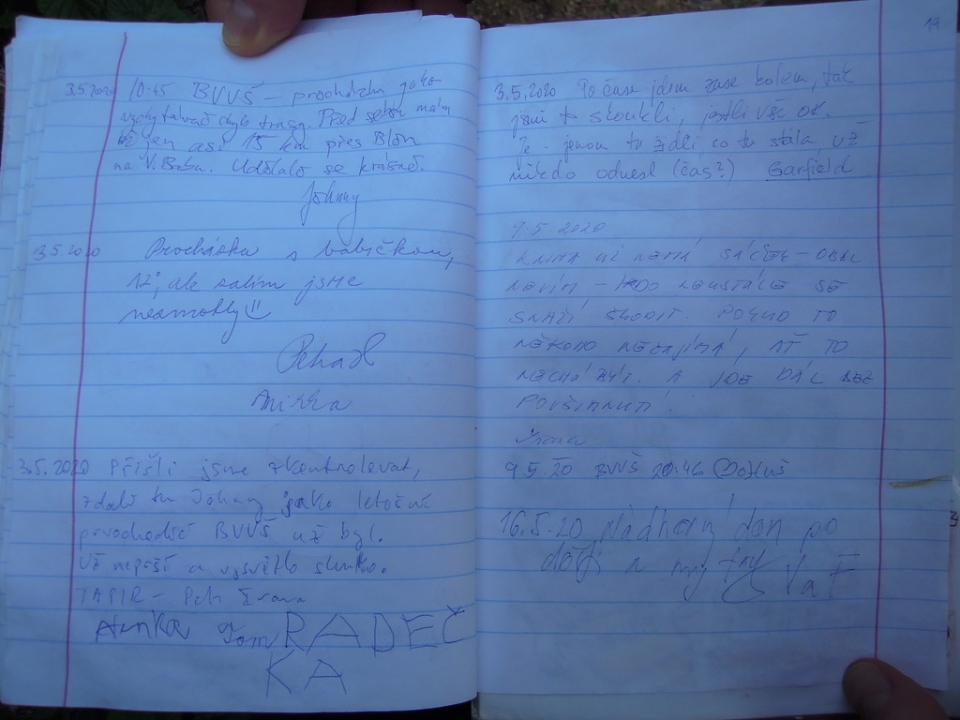 3.5.2020 10:45 BVVŠ – procházím jako
trasy. Před sebou mám
už jen asi 15 km přes Blín
na V. Babu. Udělalo se krásně.
Johnny
3.5.2020 Procházka s babičkou,
12°, ale zatím jsme
nezmokly
Anička
3.5.2020 Přišli jsme zkontrolovat,
zdali tu Johnny jako letošní
prvochodič BVVŠ už byl.
Už neprší a vysvětlo slunko.
TAPIR – Petr Ivana
Anka Tom RADEČ
KA
19
3.5.2020 Po čase jdem zase kolem, tak
jsme to skoukli, jestli vše OK.
Je – jenom tu židli co tu stála, už
někdo odnesl (čas?) Garfield
9.5.2020
KNIHA UŽ NEMÁ SÁČEK – OBAL
NEVÍM – KDO NEUSTÁLE SE
SNAŽÍ ŠKODIT. POKUD TO
NĚKOHO NEZAJÍMÁ, AŤ TO
NECHÁ BÝT. A JDE DÁL BEZ
POVŠIMNUTÍ!
Ivana
9.5.20 BVVŠ 20:46
16.5.20 Nádherný den po
dešti a my tady